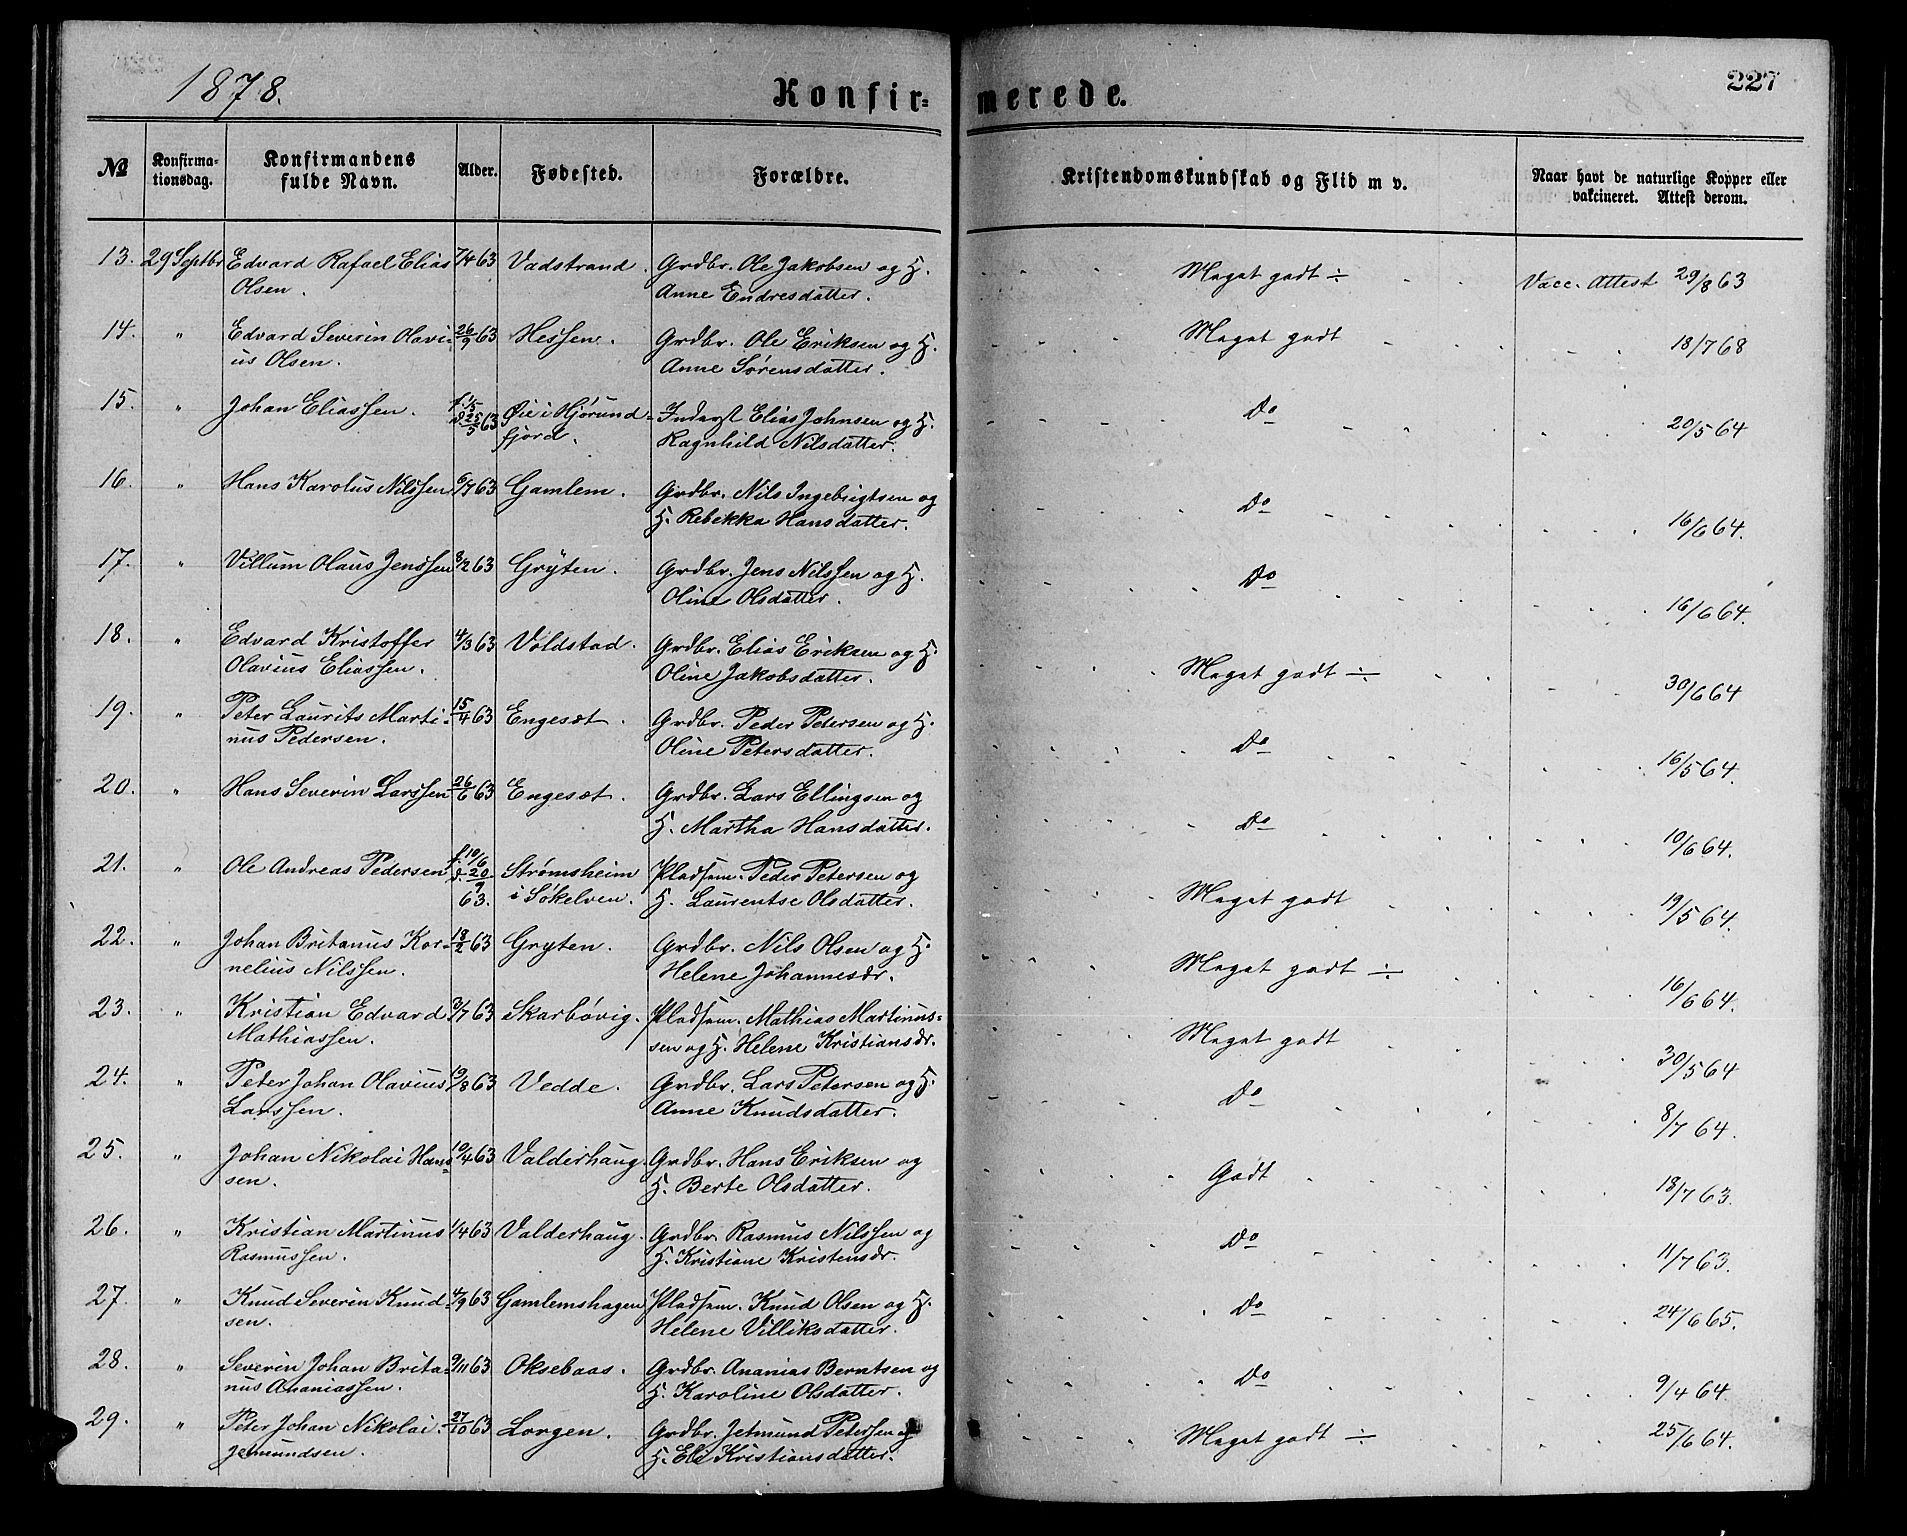 1878.
Konfir=
merede.
227
№
Konfirma-
tionsdag.
Konfirmandens
fulde Navn.
Alder.
Fødested.
Forældre.
Kristendomskundskab og Flid m v.
Naar havt de naturlige Kopper eller
vakcineret. Attest derom.
13. 29 Septbr Edvard Rafael Elias 7/4 63 Vadstrand. Grdbr. Ole Jakobsen og H. Meget godt ÷ Vacc. Attest 29/8 63
Olsen. Anne Endresdatter.
14. " Edvard Severin Olavi- 26/9 63 Hessen. Grdbr. Ole Eriksen og H. Meget godt 18/7 68
us Olsen. Anne Sørensdatter.
15. " Johan Eliassen. f. 1/5 d. 25/5 63 Øie i Hjørund= Inderst Elias Johnsen og H. Do 20/5 64
fjord. Ragnhild Nilsdatter.
16. " Hans Karolus Nilssen 6/7 63 Gamlem. Grdbr. Nils Ingebrigtsen og Do 16/6 64.
H. Rebekka Hansdatter.
17. " Villum Olaus Jenssen 8/2 63 Gryten. Grdbr. Jens Nilssen og H. Do 16/6 64.
Oline Olsdatter.
18. " Edvard Kristoffer 4/3 63 Voldstad. Grdbr. Elias Eriksen og H. Meget godt ÷ 30/6 64
Olavius Eliassen. Oline Jakobsdatter.
19. " Peter Laurits Marti- 15/4 63 Engeset. Grdbr. Peder Petersen og H. Do 16/5 64.
nus Pedersen. Oline Petersdatter.
20. " Hans Severin Larssen 26/6 63 Engeset. Grdbr. Lars Ellingsen og Do 10/6 64.
H. Martha Hansdatter.
21. " Ole Andreas Pedersen f. 10/6 d. 20/9 63. Strømsheim Pladsm. Peder Petersen og Meget godt 19/5 64.
i Søkelven. H. Laurentse Olsdatter.
22. " Johan Britanus Kor- 18/2 63 Gryten. Grdbr. Nils Olsen og H. Meget godt ÷ 16/6 64.
nelius Nilssen. Helene Johannesdr.
23. " Kristian Edvard 3/7 63 Skarbøvig. Pladsm. Mathias Martinus= Meget godt 30/5 64
Mathiassen. sen og H. Helene Kristiansdr.
24. " Peter Johan Olavius 19/8 63 Vedde. Grdbr. Lars Petersen og H. Do 8/7 64.
Larssen. Anne Knudsdatter.
25. " Johan Nikolai Hans= 10/4 63 Valderhaug. Grdbr. Hans Eriksen og Godt 18/7 63.
sen. H. Berte Olsdatter.
26. " Kristian Martinus 1/4 63 Valderhaug. Grdbr. Rasmus Nilssen og Do 11/7 63.
Rasmussen. H. Kristiane Kristensdr.
27. " Knud Severin Knud- 4/9 63 Gamlemshagen Pladsm. Knud Olsen og H. Do 24/6 65.
sen. Helene Villiksdatter.
28. " Severin Johan Brita- 9/11 63 Oksebaas. Grdbr. Ananias Berntsen og Do 9/4 64.
nus Ananiassen. H. Karoline Olsdatter.
29. " Peter Johan Nikolai 27/10 63 Longen. Grdbr. Jetmund Peterssen og Meget godt ÷ 25/6 64.
Jemundsen. H. Eli Kristiansdatter.